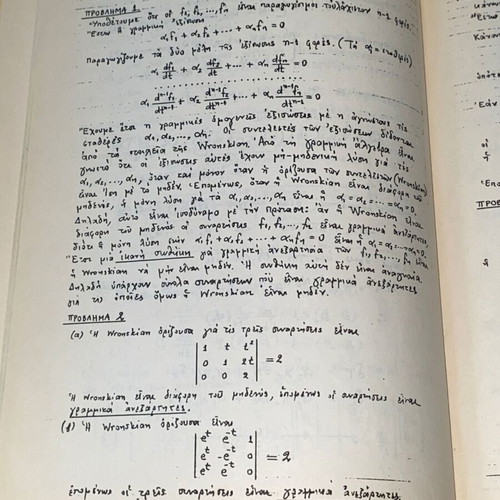 ΠΡΟΒΛΗΜΑ 1
Ὑποθέτουμε ὅτι οἱ f₁, f₂, ..., fₙ εἶναι παραγωγίσιμοι τουλάχιστον n-1 φορές.
Ἔστω ἡ γραμμική ἐξίσωση
α₁f₁ + α₂f₂ + ... + αₙfₙ = 0
Παραγωγίζουμε τά δύο μέλη τῆς ἐξίσωσης n-1 φορές. (Τά αⱼ = σταθμοί)
α₁ df₁/dt + α₂ df₂/dt + ... + αₙ dfₙ/dt = 0
..............................
α₁ dⁿ⁻¹f₁/dtⁿ⁻¹ + α₂ dⁿ⁻¹f₂/dtⁿ⁻¹ + ... + αₙ dⁿ⁻¹fₙ/dtⁿ⁻¹ = 0
Ἔχουμε ἔτσι n γραμμικές ὁμογενεῖς ἐξισώσεις μέ n ἀγνώστους τίς
σταθερές α₁, α₂, ..., αₙ. Οἱ συντελεστές τῶν ἐξισώσεων δίδονται
ἀπό τά στοιχεῖα τῆς Wronskian. Ἀπό τή γραμμική ἄλγεβρα εἶναι
γνωστό ὅτι οἱ ἐξισώσεις αὐτές ἔχουν μή-μηδενική λύση γιά τίς
α₁, α₂, ..., αₙ, ὅταν καί μόνον ὅταν ἡ ὁρίζουσα τῶν συντελεστῶν (Wronskian)
εἶναι ἴση μέ τό μηδέν. Ἑπομένως, ὅταν ἡ Wronskian εἶναι διάφορη τοῦ
μηδενός, ἡ μόνη λύση γιά τά α₁, α₂, ..., αₙ εἶναι ἡ α₁ = α₂ = ... = αₙ = 0.
Δηλαδή, αὐτό εἶναι ἰσοδύναμο μέ τήν πρόταση: ἄν ἡ Wronskian εἶναι
διάφορη τοῦ μηδενός οἱ συναρτήσεις f₁, f₂, ..., fₙ εἶναι γραμμικά ἀνεξάρτητες,
διότι ἡ μόνη λύση τῶν α₁f₁ + α₂f₂ + ... + αₙfₙ = 0 εἶναι ἡ α₁ = α₂ = ... αₙ = 0.
Ἔτσι μιά ἱκανή συνθήκη γιά γραμμική ἀνεξαρτησία τῶν f₁, f₂, ..., fₙ εἶναι
ἡ Wronskian νά μήν εἶναι μηδέν. Ἡ συνθήκη αὐτή δέν εἶναι ἀναγκαία.
Δηλαδή ὑπάρχουν σύνολα συναρτήσεων πού εἶναι γραμμικά ἀνεξάρτητες
γιά τίς ὁποῖες ὅμως ἡ Wronskian εἶναι μηδέν.
ΠΡΟΒΛΗΜΑ 2
(α) Ἡ Wronskian ὁρίζουσα γιά τίς τρεῖς συναρτήσεις εἶναι
| 1 t t² |
| 0 1 2t | = 2
| 0 0 2 |
Ἡ Wronskian εἶναι διάφορη τοῦ μηδενός, ἑπομένως οἱ συναρτήσεις εἶναι
γραμμικά ἀνεξάρτητες.
(β) Ἡ Wronskian ὁρίζουσα εἶναι
| eᵗ e⁻ᵗ 1 |
| eᵗ -e⁻ᵗ 0 | = 2
| eᵗ e⁻ᵗ 0 |
ἑπομένως οἱ τρεῖς συναρτήσεις εἶναι γραμμικά ἀνεξάρτητες